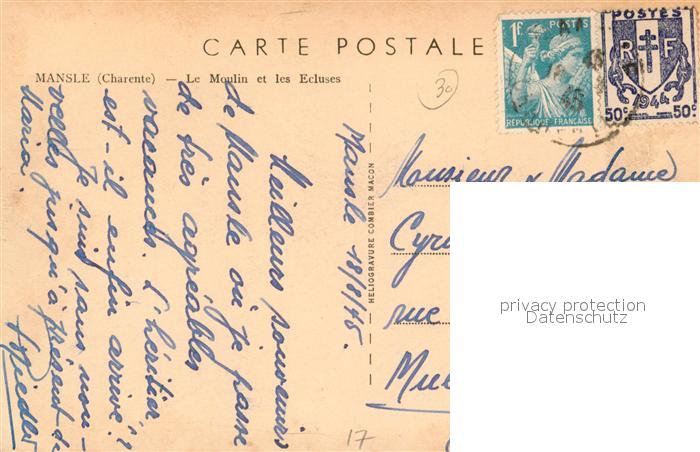 CARTE POSTALE
MANSLE (Charente) — Le Moulin et les Ecluses
30
1F POSTES
RÉPUBLIQUE FRANÇAISE
POSTES
R F
1944
50c 50c
Mansle 18/8/45.
Meilleurs souvenirs
de Mansle où je passe
de très agréables
vacances. L'héritier
est-il enfin arrivé ?
Je suis sans nou-
velles jusqu'à présent de
Maria.
HELIOGRAVURE COMBIER MACON
Monsieur & Madame
rue
17
privacy protection
Datenschutz